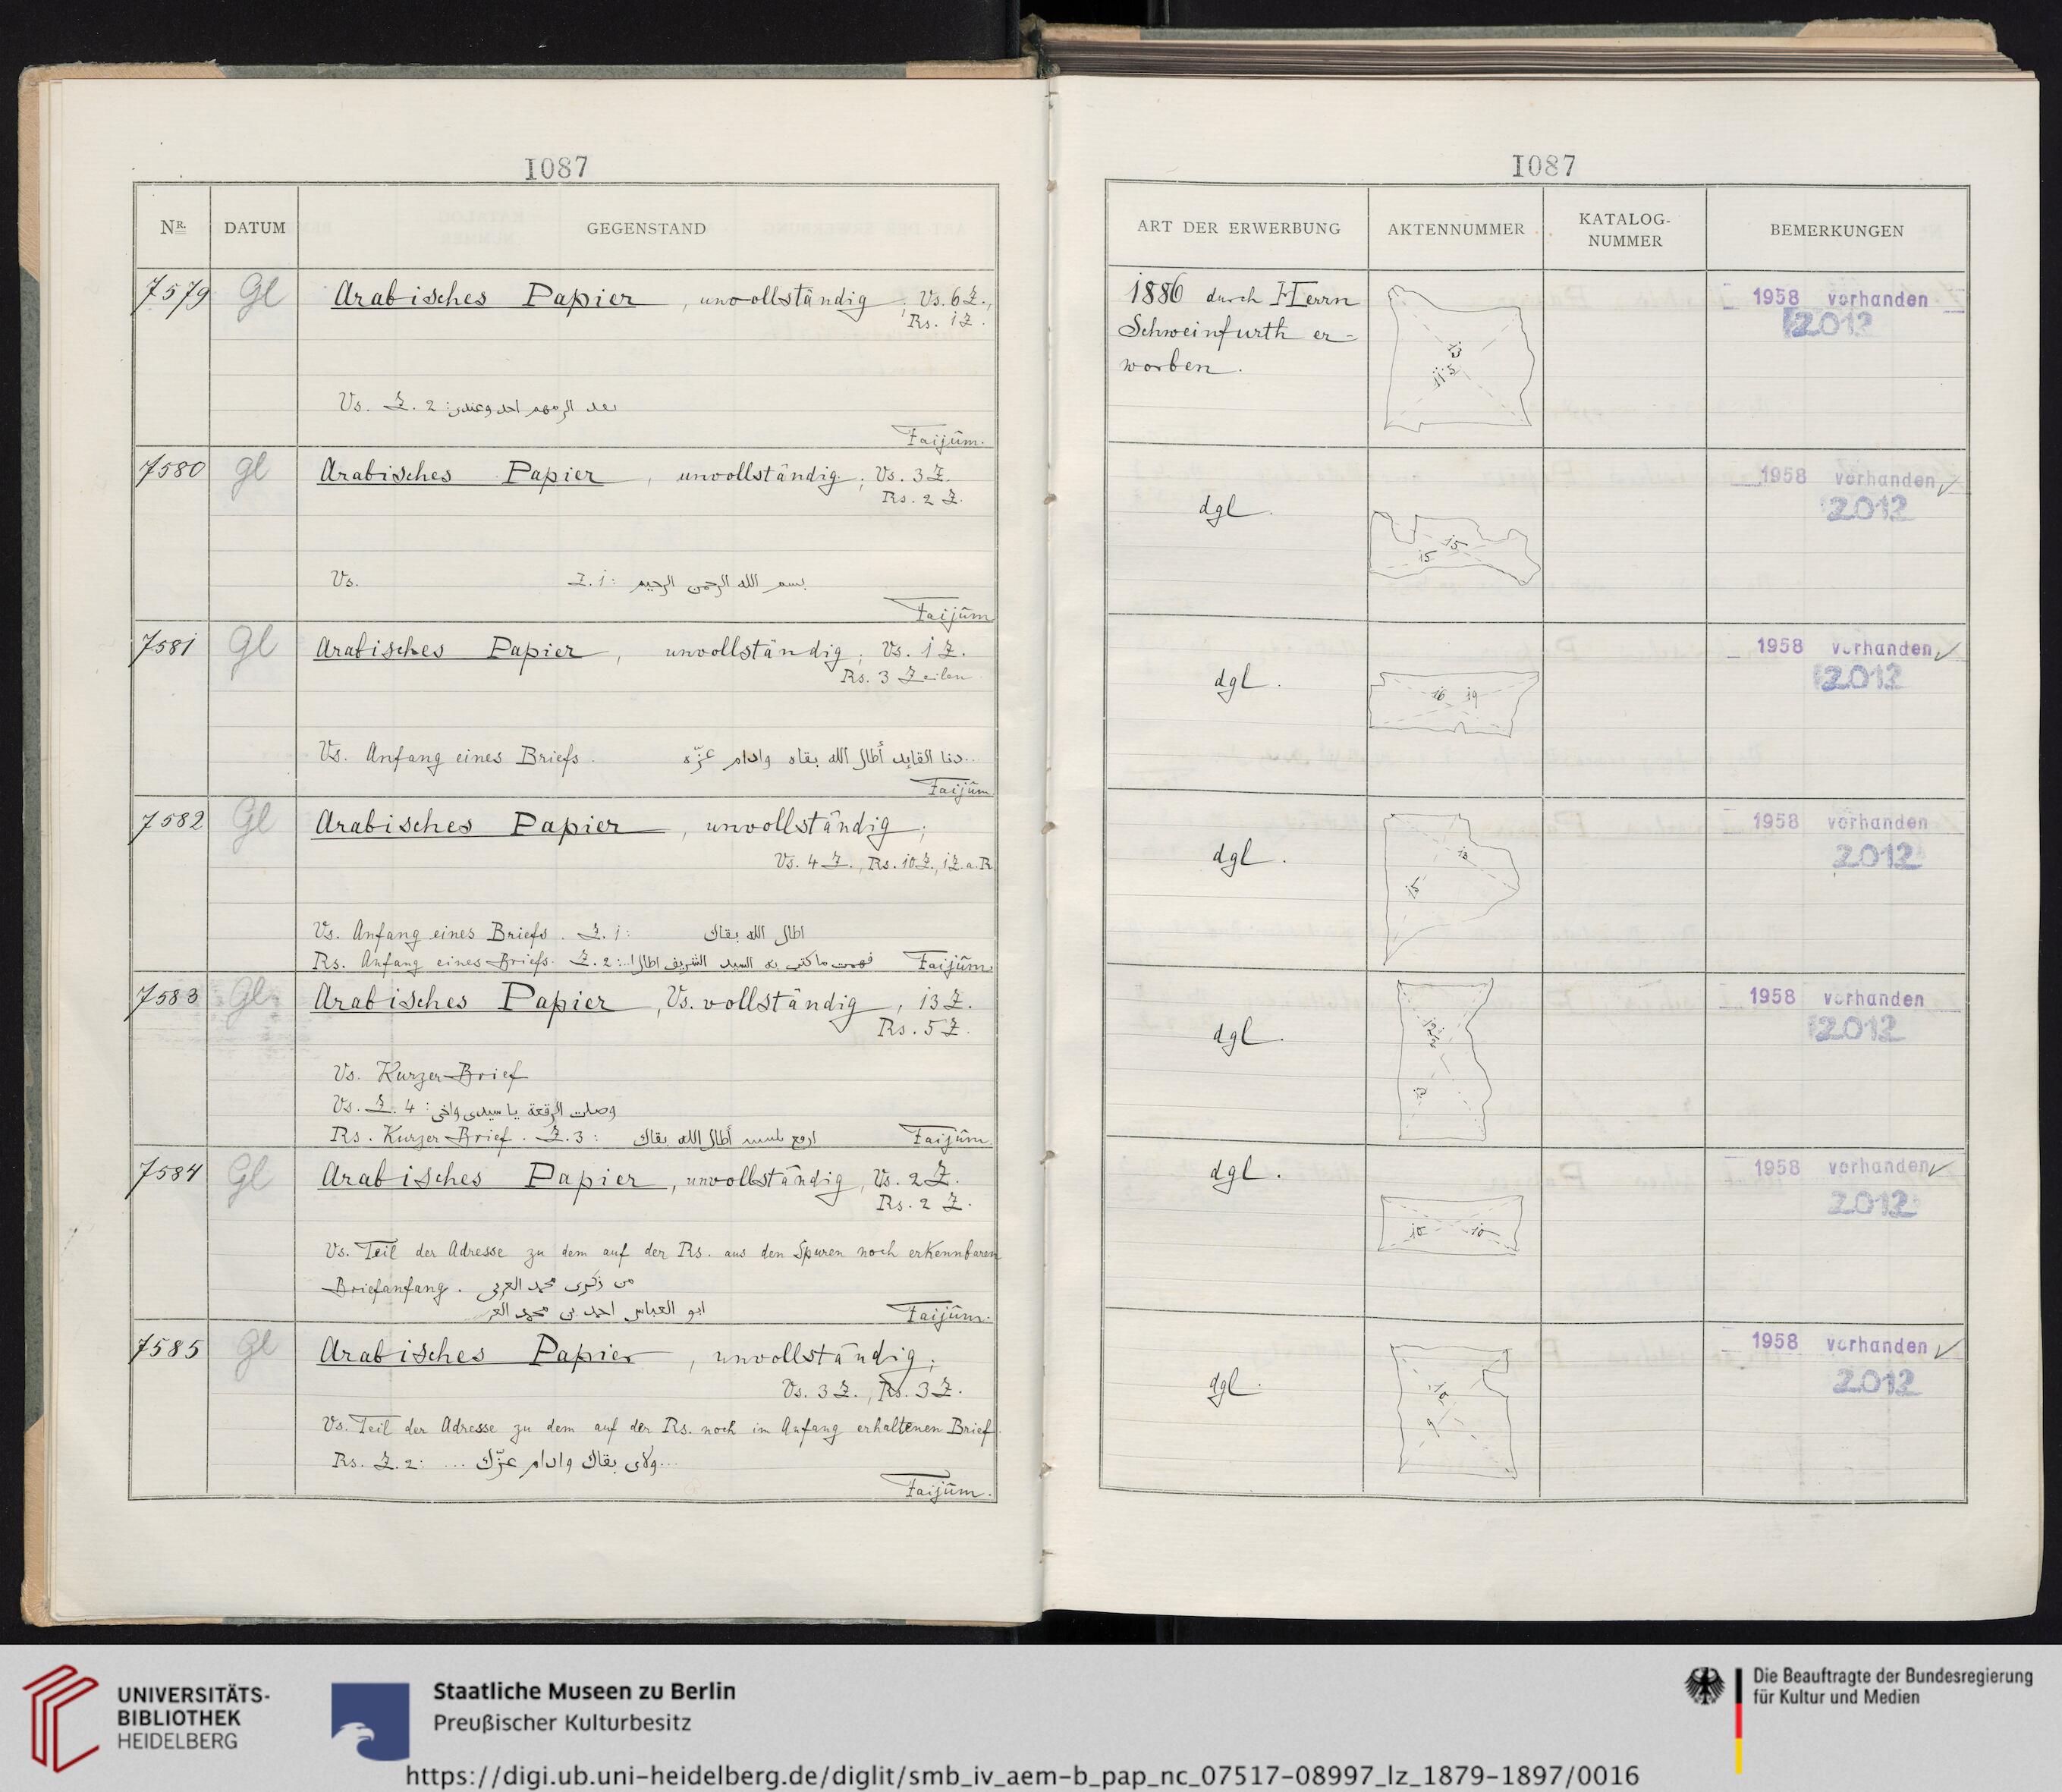 1087
Nr. DATUM GEGENSTAND
7579 Gl Arabisches Papier, unvollständig; Vs. 6 Z.,
Rs. 1 Z.
Vs. Z. 2:
Faijûm.
7580 Gl Arabisches Papier, unvollständig; Vs. 3 Z.
Rs. 2 Z.
Vs. Z. 1: بسم الله الرحمن الرحيم
Faijûm
7581 Gl Arabisches Papier, unvollständig; Vs. 1 Z.
Rs. 3 Zeilen
Vs. Anfang eines Briefs. القايد أطال الله بقاه وادام عزّه
Faijûm
7582 Gl Arabisches Papier, unvollständig;
Vs. 4 Z., Rs. 10 Z., 1 Z. a. R.
Vs. Anfang eines Briefs. Z. 1: اطال الله بقاك
Rs. Anfang eines Briefs. Z. 2: فهمت ما كتب به السيد الشريف اطال ا Faijûm.
7583 Gl Arabisches Papier, Vs. vollständig, 13 Z.
Rs. 5 Z.
Vs. Kurzer Brief
Vs. Z. 4: وصلت الرقعة يا سيدى واخى
Rs. Kurzer Brief. Z. 3: أطال الله بقاك Faijûm.
7584 Gl Arabisches Papier, unvollständig, Vs. 2 Z.
Rs. 2 Z.
Vs. Teil der Adresse zu dem auf der Rs. aus den Spuren noch erkennbaren
Briefanfang. من ذكرى محمد العربى
ابو العباس احمد بن محمد العر Faijûm.
7585 Gl Arabisches Papier, unvollständig;
Vs. 3 Z., Rs. 3 Z.
Vs. Teil der Adresse zu dem auf der Rs. noch im Anfang erhaltenen Brief
Rs. Z. 2: ...ولاى بقاك وادام عزّك ...
Faijûm.
1087
ART DER ERWERBUNG AKTENNUMMER KATALOG-NUMMER BEMERKUNGEN
1886 durch Herrn
Schweinfurth er-
worben.
13
11.5
1958 vorhanden
2012
dgl.
15
15
1958 vorhanden
2012
dgl.
16 19
1958 vorhanden
2012
dgl.
13
1958 vorhanden
2012
dgl.
1958 vorhanden
2012
dgl.
10 10
1958 vorhanden
2012
dgl.
10
9
1958 vorhanden
2012
UNIVERSITÄTS-
BIBLIOTHEK
HEIDELBERG
Staatliche Museen zu Berlin
Preußischer Kulturbesitz
Die Beauftragte der Bundesregierung
für Kultur und Medien
https://digi.ub.uni-heidelberg.de/diglit/smb_iv_aem-b_pap_nc_07517-08997_lz_1879-1897/0016